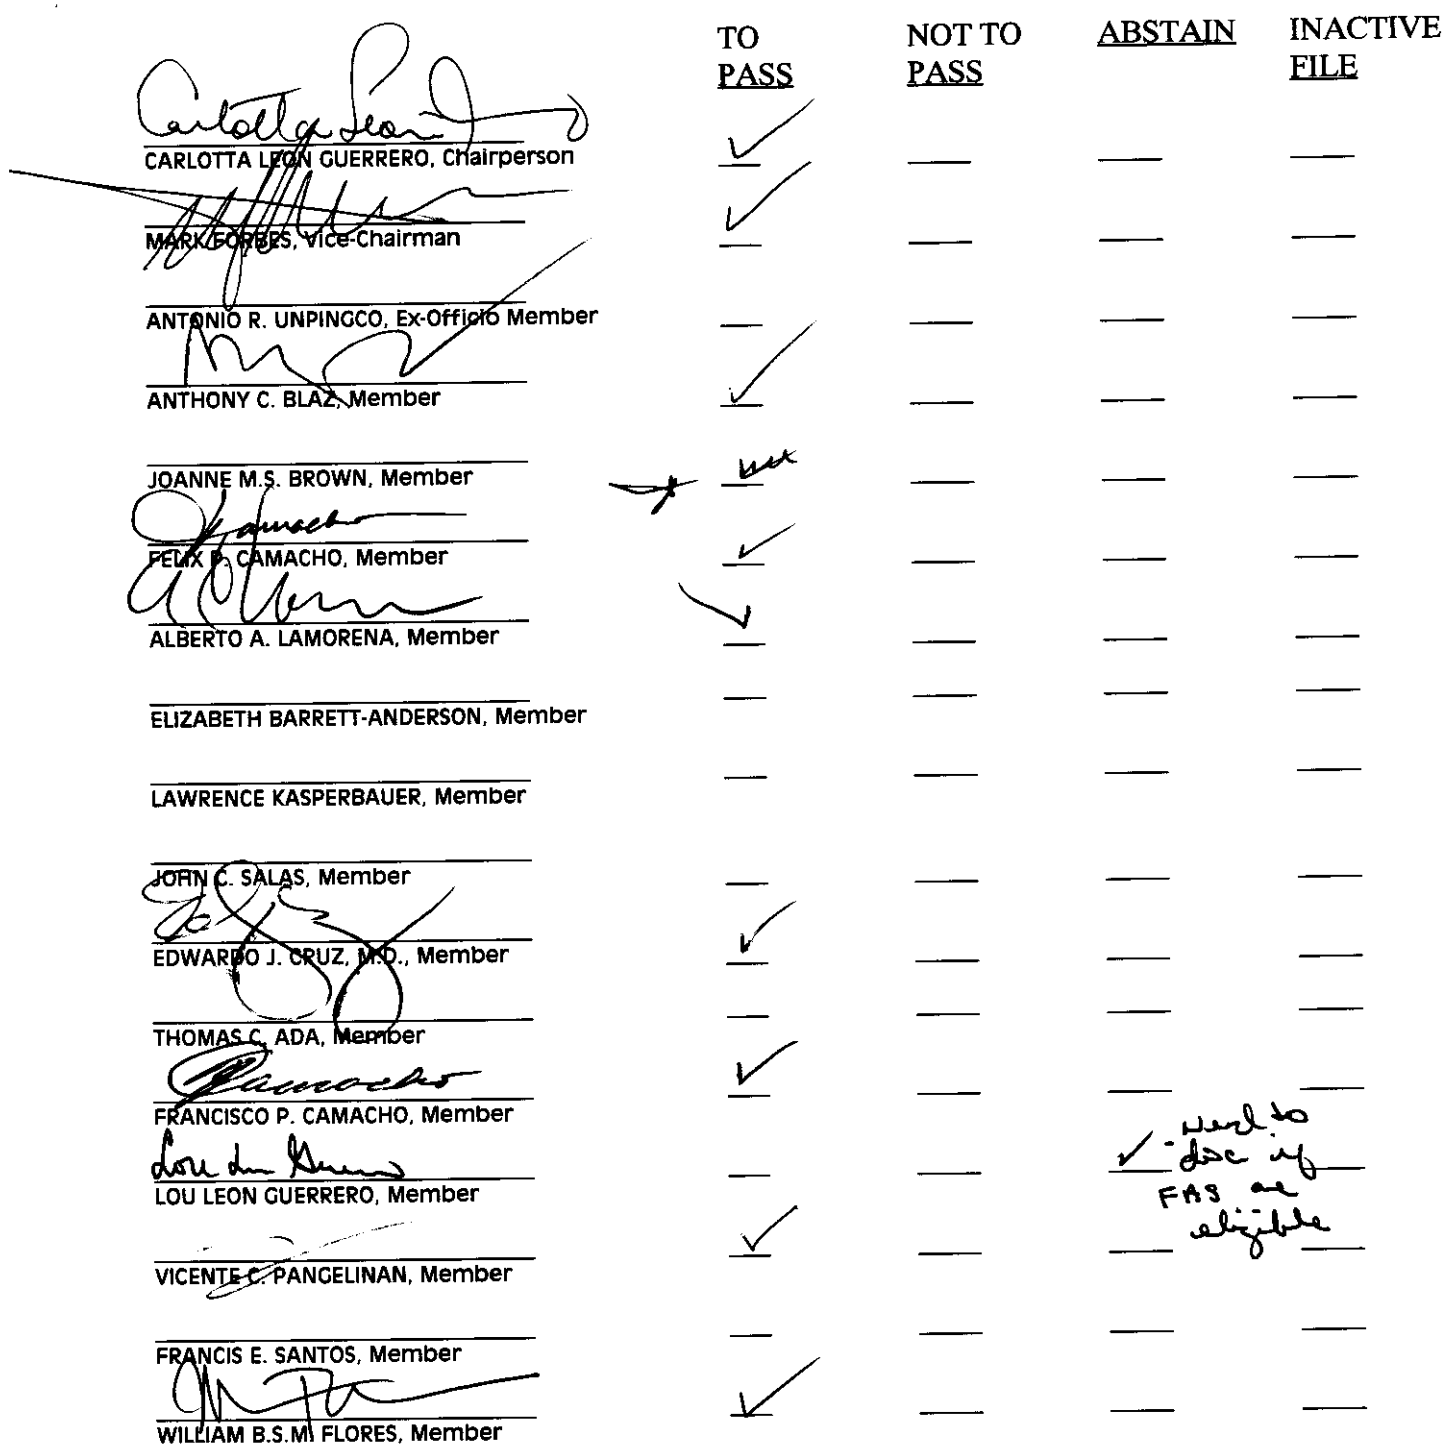 TO PASS NOT TO PASS ABSTAIN INACTIVE FILE
Carlotta Leon
CARLOTTA LEON GUERRERO, Chairperson
MARK FORBES, Vice-Chairman
ANTONIO R. UNPINGCO, Ex-Officio Member
ANTHONY C. BLAZ, Member
JOANNE M.S. BROWN, Member
Camacho
FELIX P. CAMACHO, Member
ALBERTO A. LAMORENA, Member
ELIZABETH BARRETT-ANDERSON, Member
LAWRENCE KASPERBAUER, Member
JOHN C. SALAS, Member
EDWARDO J. CRUZ, M.D., Member
THOMAS C. ADA, Member
Camacho
FRANCISCO P. CAMACHO, Member
Lou Leon Guerrero
LOU LEON GUERRERO, Member
Need to
disc if
FAS are
eligible
VICENTE C. PANGELINAN, Member
FRANCIS E. SANTOS, Member
WILLIAM B.S.M. FLORES, Member